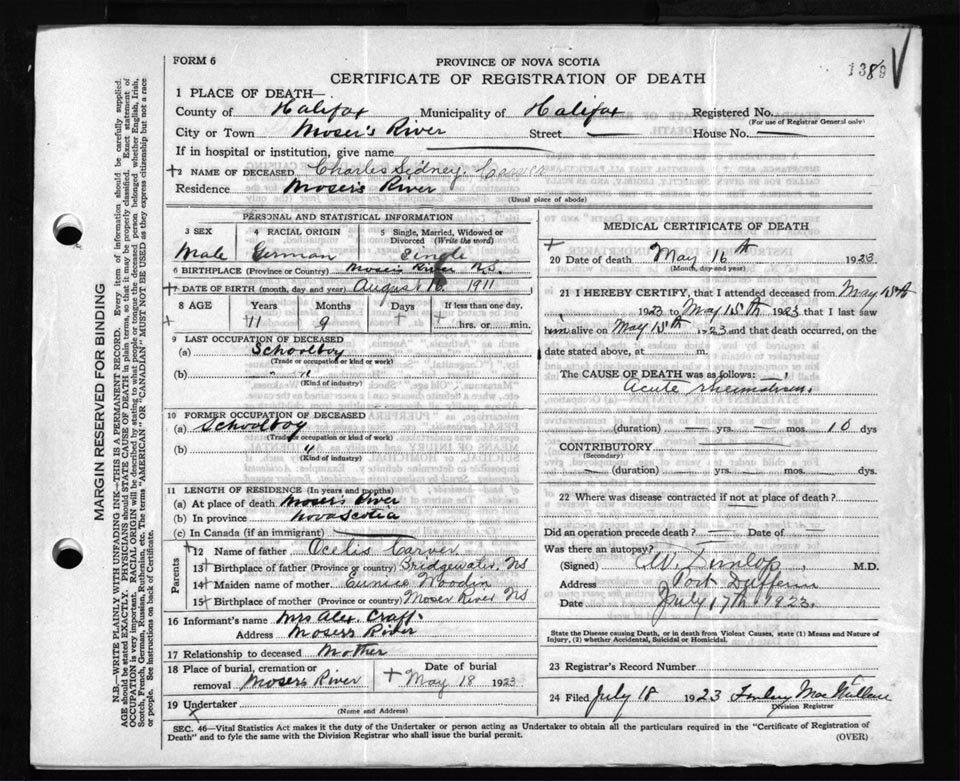 FORM 6
PROVINCE OF NOVA SCOTIA
CERTIFICATE OF REGISTRATION OF DEATH
1389
1 PLACE OF DEATH—
County of Halifax Municipality of Halifax Registered No.
(For use of Registrar General only)
City or Town Moser's River Street — House No. —
If in hospital or institution, give name —
2 NAME OF DECEASED Charles Sidney
Residence Moser's River
(Usual place of abode)
PERSONAL AND STATISTICAL INFORMATION
3 SEX 4 RACIAL ORIGIN 5 Single, Married, Widowed or Divorced (Write the word)
Male German Single
6 BIRTHPLACE (Province or Country) Moser's River N.S.
7 DATE OF BIRTH (month, day and year) August 1911
8 AGE Years Months Days If less than one day,
11 9 hrs. or min.
9 LAST OCCUPATION OF DECEASED
(a) Schoolboy
(Trade or occupation or kind or work)
(b) " "
(Kind of industry)
10 FORMER OCCUPATION OF DECEASED
(a) Schoolboy
(Trade or occupation or kind or work)
(b) "
(Kind of industry)
11 LENGTH OF RESIDENCE (In years and months)
(a) At place of death Moser's River
(b) In province Nova Scotia
(c) In Canada (if an immigrant) —
Parents
12 Name of father Ocelis Carver
13 Birthplace of father (Province or country) Bridgewater, NS
14 Maiden name of mother Eunice Woodin
15 Birthplace of mother (Province or country) Moser River NS
16 Informant's name Mrs Alex. Craft
Address Mosers River
17 Relationship to deceased Mother
18 Place of burial, cremation or removal Mosers River Date of burial May 18 1923
19 Undertaker
(Name and Address)
MEDICAL CERTIFICATE OF DEATH
20 Date of death May 16th 1923
(Month, day and year)
21 I HEREBY CERTIFY, that I attended deceased from May 15th
1923 to May 15th 1923 that I last saw
him alive on May 15th 1923 and that death occurred, on the
date stated above, at m.
The CAUSE OF DEATH was as follows:
Acute rheumatism.
(duration) — yrs. — mos. 10 dys
CONTRIBUTORY
(Secondary)
(duration) yrs. mos. dys.
22 Where was disease contracted if not at place of death?
Did an operation precede death? — Date of
Was there an autopsy?
(Signed) W. Dunlop, M.D.
Address Port Dufferin
Date July 17th 1923.
State the Disease causing Death, or in death from Violent Causes, state (1) Means and Nature of Injury, (2) whether Accidental, Suicidal or Homicidal.
23 Registrar's Record Number
24 Filed July 18 1923
Division Registrar
SEC. 46—Vital Statistics Act makes it the duty of the Undertaker or person acting as Undertaker to obtain all the particulars required in the "Certificate of Registration of
Death" and to fyle the same with the Division Registrar who shall issue the burial permit.
(OVER)
MARGIN RESERVED FOR BINDING
N.B.—WRITE PLAINLY WITH UNFADING INK—THIS IS A PERMANENT RECORD. Every item of information should be carefully supplied.
AGE should be stated EXACTLY. PHYSICIANS should STATE CAUSE OF DEATH in plain terms, so that it may be properly classified. Exact statement of
OCCUPATION is very important. RACIAL ORIGIN will be described by stating to what people or tongue the deceased person belonged whether English, Irish,
Scotch, French, German, Russian, Ruthenian, etc. The terms "AMERICAN" OR "CANADIAN" MUST NOT BE USED as they express citizenship but not a race
or people. See instructions on back of Certificate.